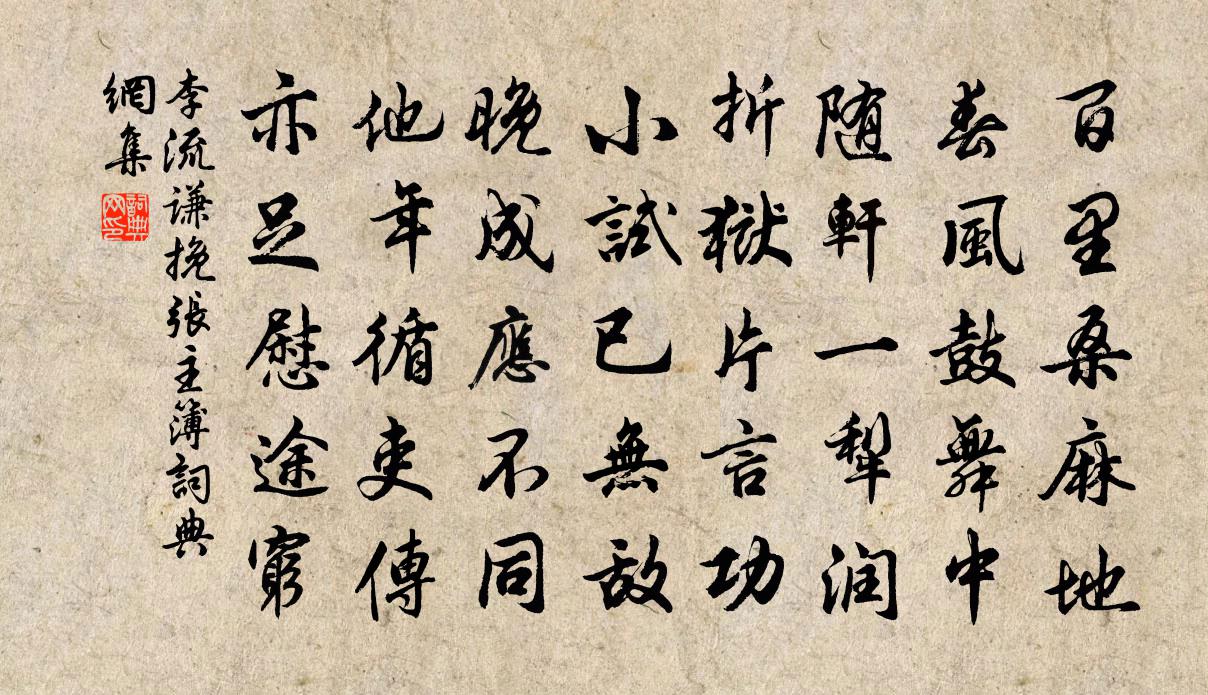 百里桑麻地
春風鼓舞中
随軒一犁润
折獄片言功
小試已無敌
晚成應不同
他年循吏傳
亦足慰途窮
李流谦挽張主簿詞典
網集
詞典網印